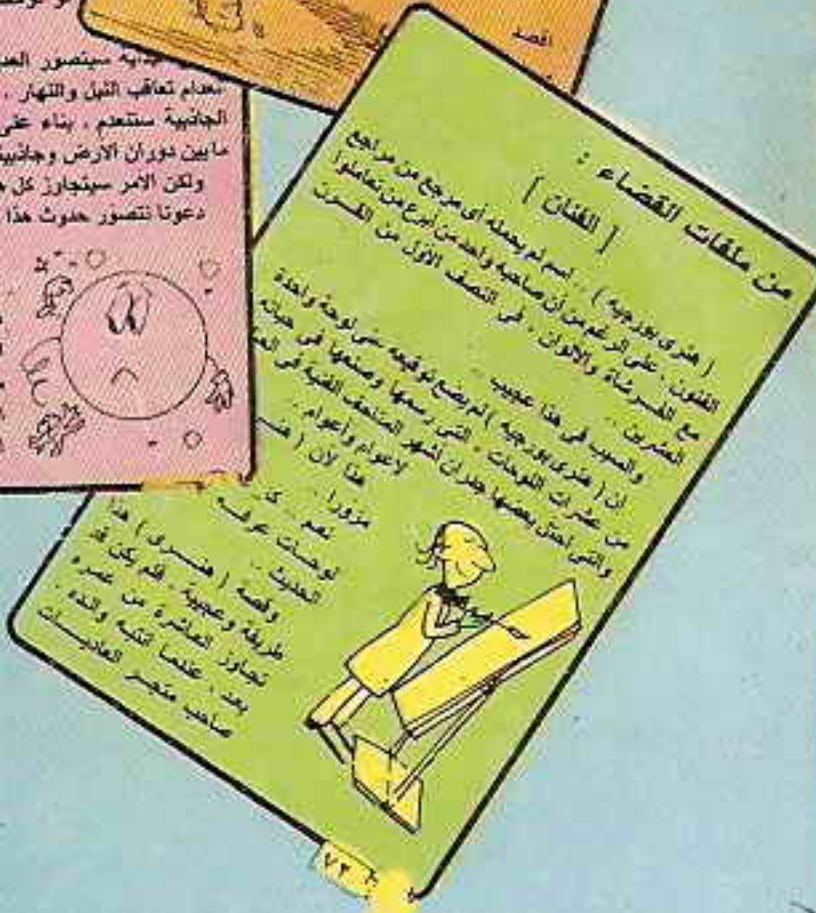 اقصد
سيتصور
انعدام تعاقب الليل والنهار ،
الجاذبية ستنعدم ، بناء على
مابين دوران الارض وجاذبية
ولكن الامر سيتجاوز كل
دعونا نتصور حدوث هذا
من ملفات القضاء :
[ الفنان ]
( هنرى بورجيه ) .. اسم لم يحمله أى مرجع من مراجع
الفنون ، على الرغم من أن صاحبه واحد من أبرع من تعاملوا
مع الفرشاة والألوان ، فى النصف الأول من القرن
العشرين ..
والسبب فى هذا عجيب ..
ان ( هنرى بورجيه ) لم يضع توقيعه على لوحة واحدة
من عشرات اللوحات ، التى رسمها وصنعها فى حياته
والتى احتل بعضها جدران اشهر المتاحف الفنية فى
لاعوام واعوام ..
هذا لأن ( هنـ
مزورا ..
نعم ..
لوحات عرفـه
الحديث ..
وقصة ( هنـرى ) هذا
طريفة وعجيبة ، فلم يكن قد
تجاوز العاشرة من عمره
بعد ، عندما انتبه والده ،
صاحب متجر العاديـات
٧٣